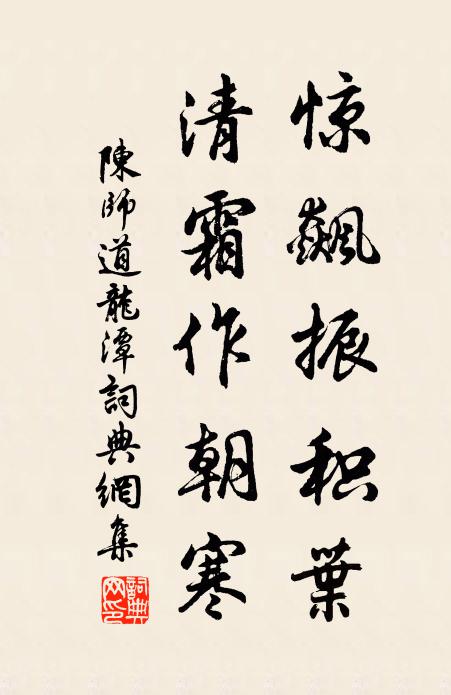 惊飙振积葉
清霜作朝寒
陳師道龍潭詞典網集
詞典网印